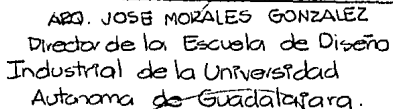 ARQ. JOSE MORALES GONZALEZ
Director de la Escuela de Diseño
Industrial de la Universidad
Autonoma de Guadalajara.